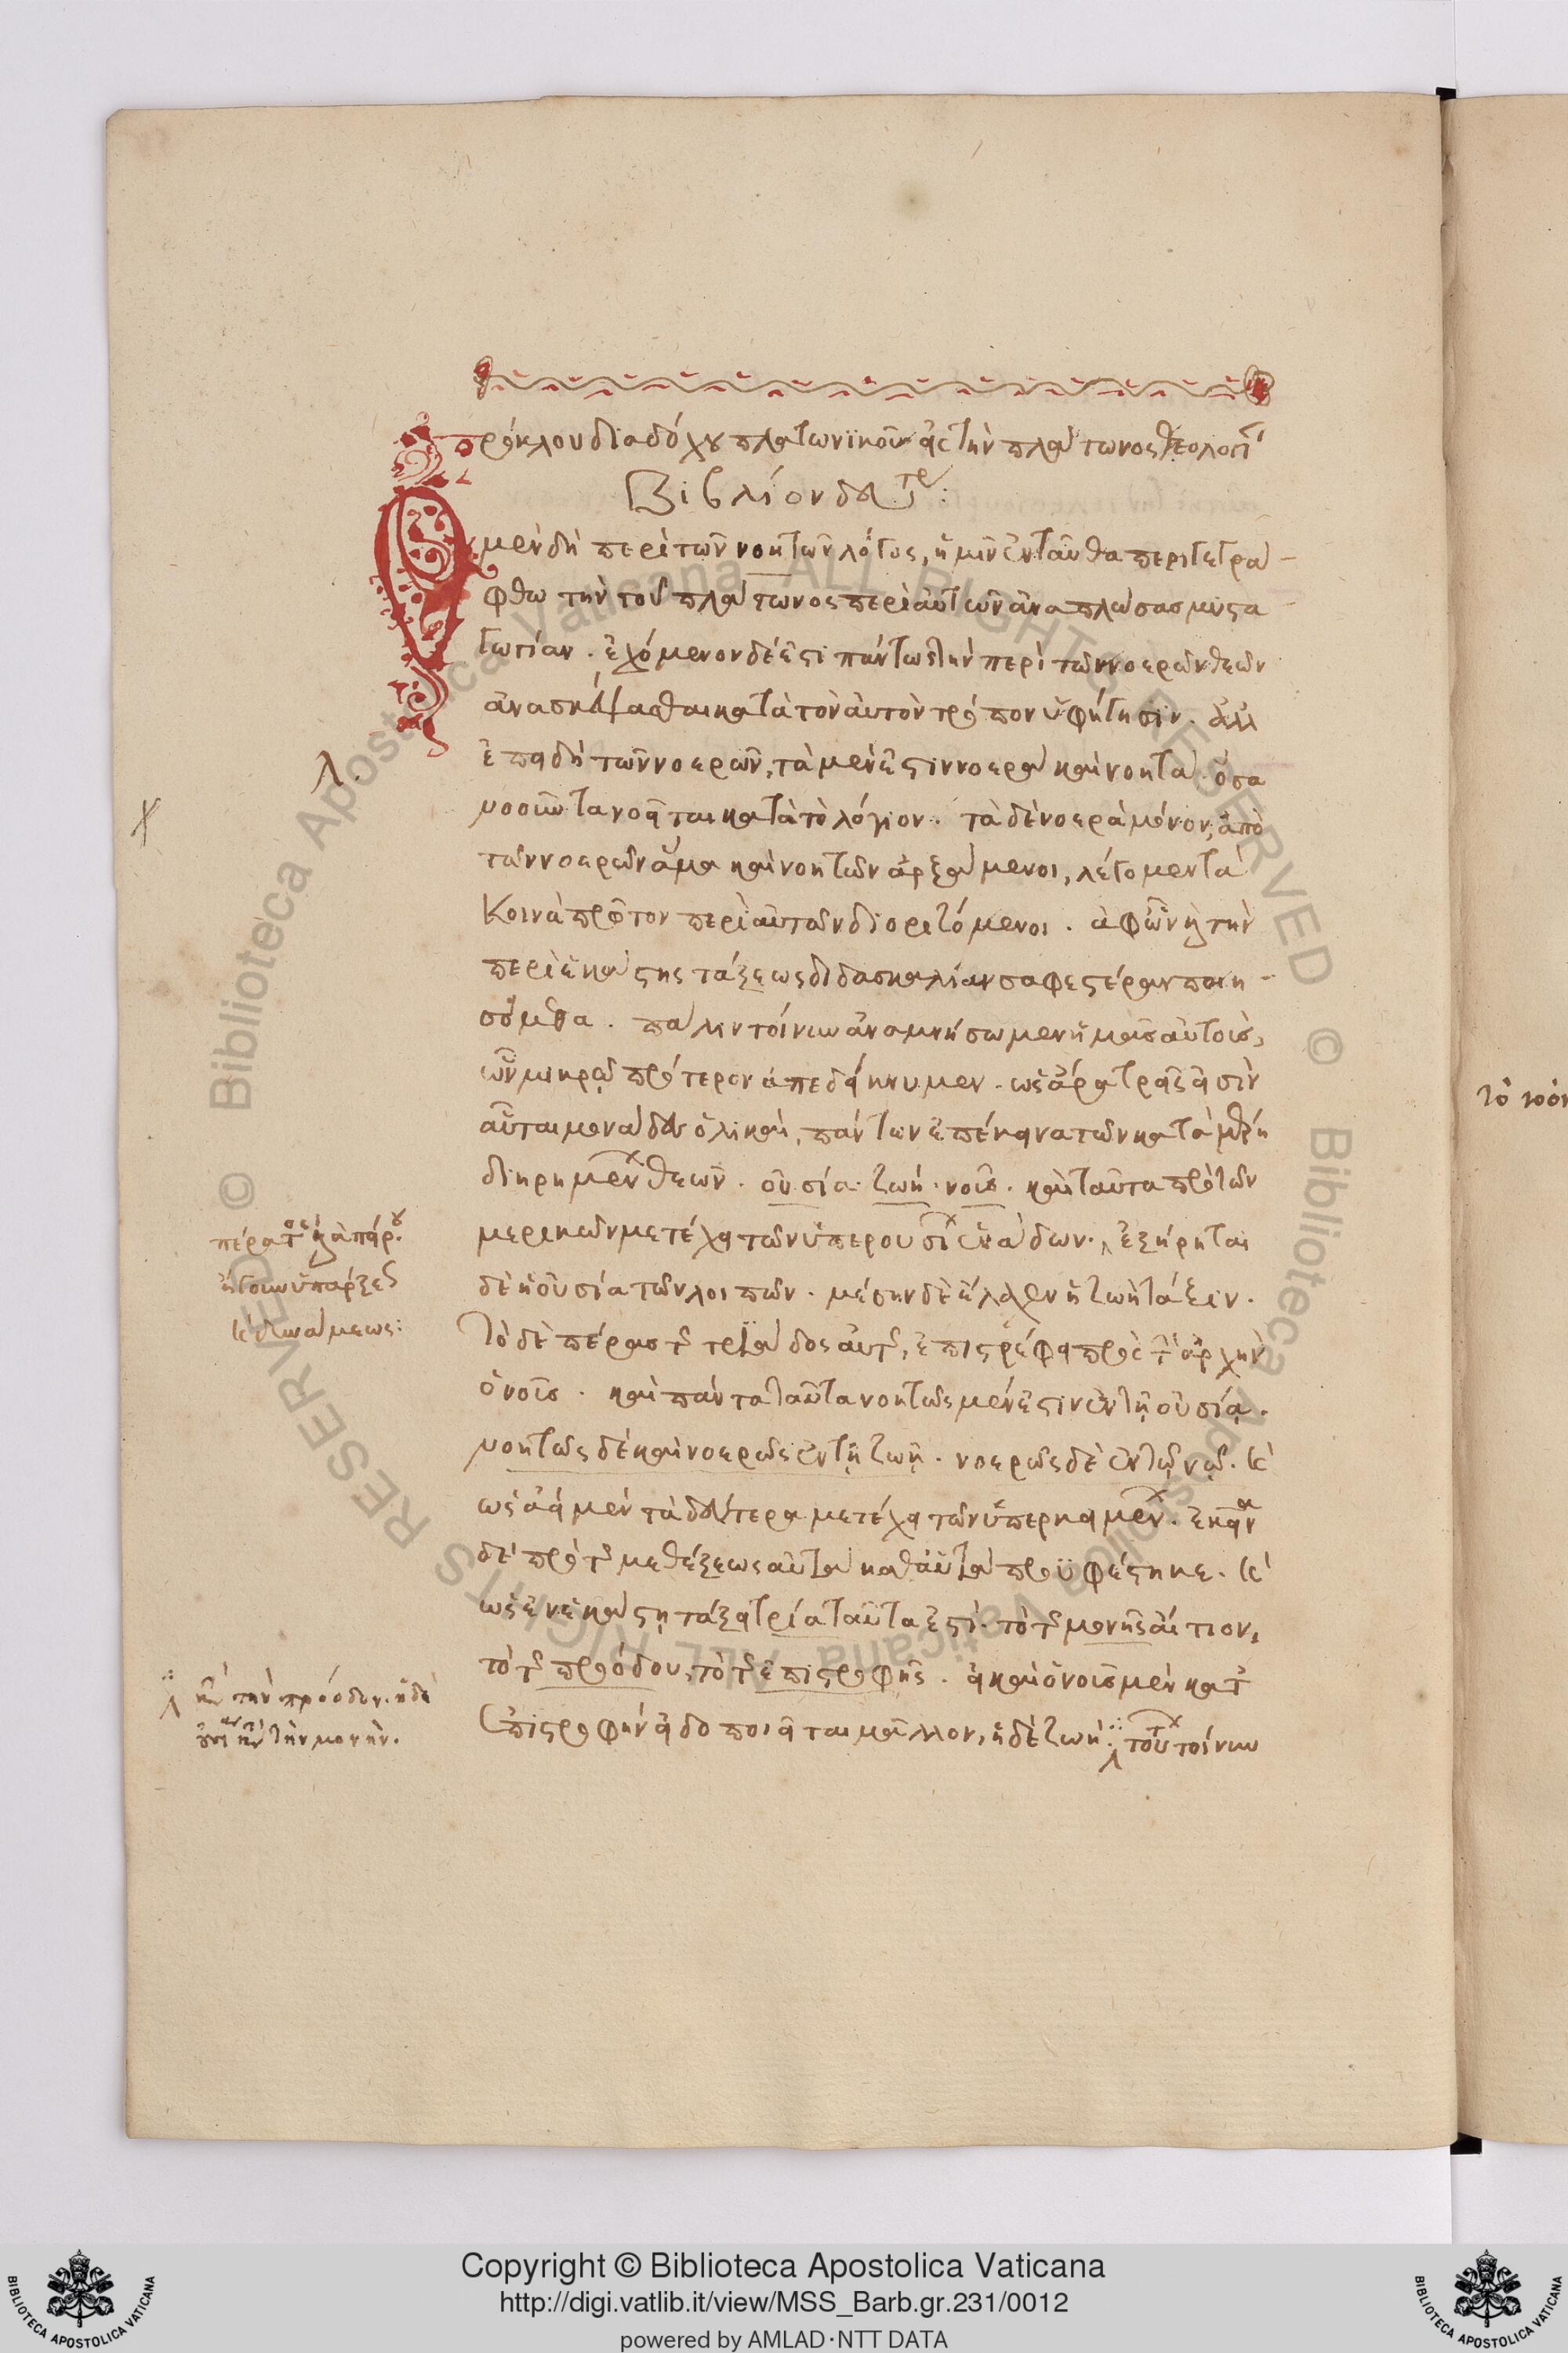 πρόκλου διαδόχου πλατωνικοῦ εἰς τὴν πλάτωνος θεολογί
Βιβλίον δεύτε:
Ὁ μὲν δὴ περὶ τῶν νοητῶν λόγος, ἡμῖν ἐνταῦθα περιγεγρά-
φθω τὴν τοῦ πλάτωνος περὶ αὐτῶν ἀναπλώσας μυστα
γωγίαν. ἐχόμενον δέ ἐστι πάντως τὴν περὶ τῶν νοερῶν θεῶν
ἀνασκέψασθαι κατὰ τὸν αὐτὸν τρόπον ὑφήγησιν. ἀλλ
ἐπειδὴ τῶν νοερῶν, τὰ μέν ἐστιν νοερὰ καὶ νοητά. ὅσα
νοοῦντα νοεῖται κατὰ τὸ λόγιον. τὰ δὲ νοερὰ μόνον, ἀπὸ
τῶν νοερῶν ἅμα καὶ νοητῶν ἀρξάμενοι, λέγομεν τὰ
κοινὰ πρῶτον περὶ αὐτῶν διοριζόμενοι. ἀφ' ὧν καὶ τὴν
περὶ ἑκάστης τάξεως διδασκαλίαν σαφεστέραν ποιη-
σόμεθα. πάλιν τοίνυν ἀναμνήσωμεν ἡμᾶς αὐτοὺς,
ὧν μικρῷ πρότερον ἀπεδείκνυμεν. ὡς ἄρα τρεῖς εἰσὶν
αὗται μονάδες ὁλικαὶ, πάντων ἐπέκεινα τῶν κατὰ μέρη
διῃρημένων θεῶν. οὐσία. ζωή. νοῦς. καὶ ταῦτα πρὸ τῶν
μερικῶν μετέχει τῶν ὑπερουσίων ἑνάδων. ἐξῄρηται
δὲ ἡ οὐσία τῶν λοιπῶν. μέσην δὲ ἔλαχεν ἡ ζωὴ τάξιν.
τὸ δὲ πέρας τῆς τριάδος αὐτῆς, ἐπιστρέφει πρὸς τὴν ἀρχὴν
ὁ νοῦς. καὶ πάντα ταῦτα νοητῶς μέν ἐστιν ἐν τῇ οὐσίᾳ.
νοητῶς δὲ καὶ νοερῶς ἐν τῇ ζωῇ. νοερῶς δὲ ἐν τῷ νῷ. κ
ὡς ἀεὶ μὲν τὰ δεύτερα μετέχει τῶν ὑπερκειμένων. ἐκεῖνα
δὲ πρὸ τῆς μεθέξεως αὐτὰ καθ' αὑτὰ προϋφέστηκε. κ
ὡς ἐν ἑκάστῃ τάξει τρία ταῦτα ἐστί. τὸ τῆς μονῆς αἴτιον,
τὸ τῆς προόδου, τὸ τῆς ἐπιστροφῆς. εἰ καὶ ὁ νοῦς μὲν κατ
ἐπιστροφὴν εἰδοποιεῖται μᾶλλον, ἡ δὲ ζωή. τούτων τοίνυν
λ.
πέρατος καὶ ἀπείρου
ἤγουν ὑπάρξεως
κ δυνάμεως:
κατὰ τὴν πρόοδον. ἡ δὲ
οὐσία κατὰ τὴν μονήν.
Copyright © Biblioteca Apostolica Vaticana
http://digi.vatlib.it/view/MSS_Barb.gr.231/0012
powered by AMLAD·NTT DATA